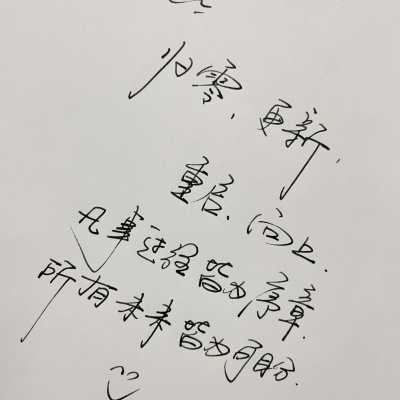 归零,更新,
重启,向上.
凡事 皆为序章.
所有未来皆为可盼.